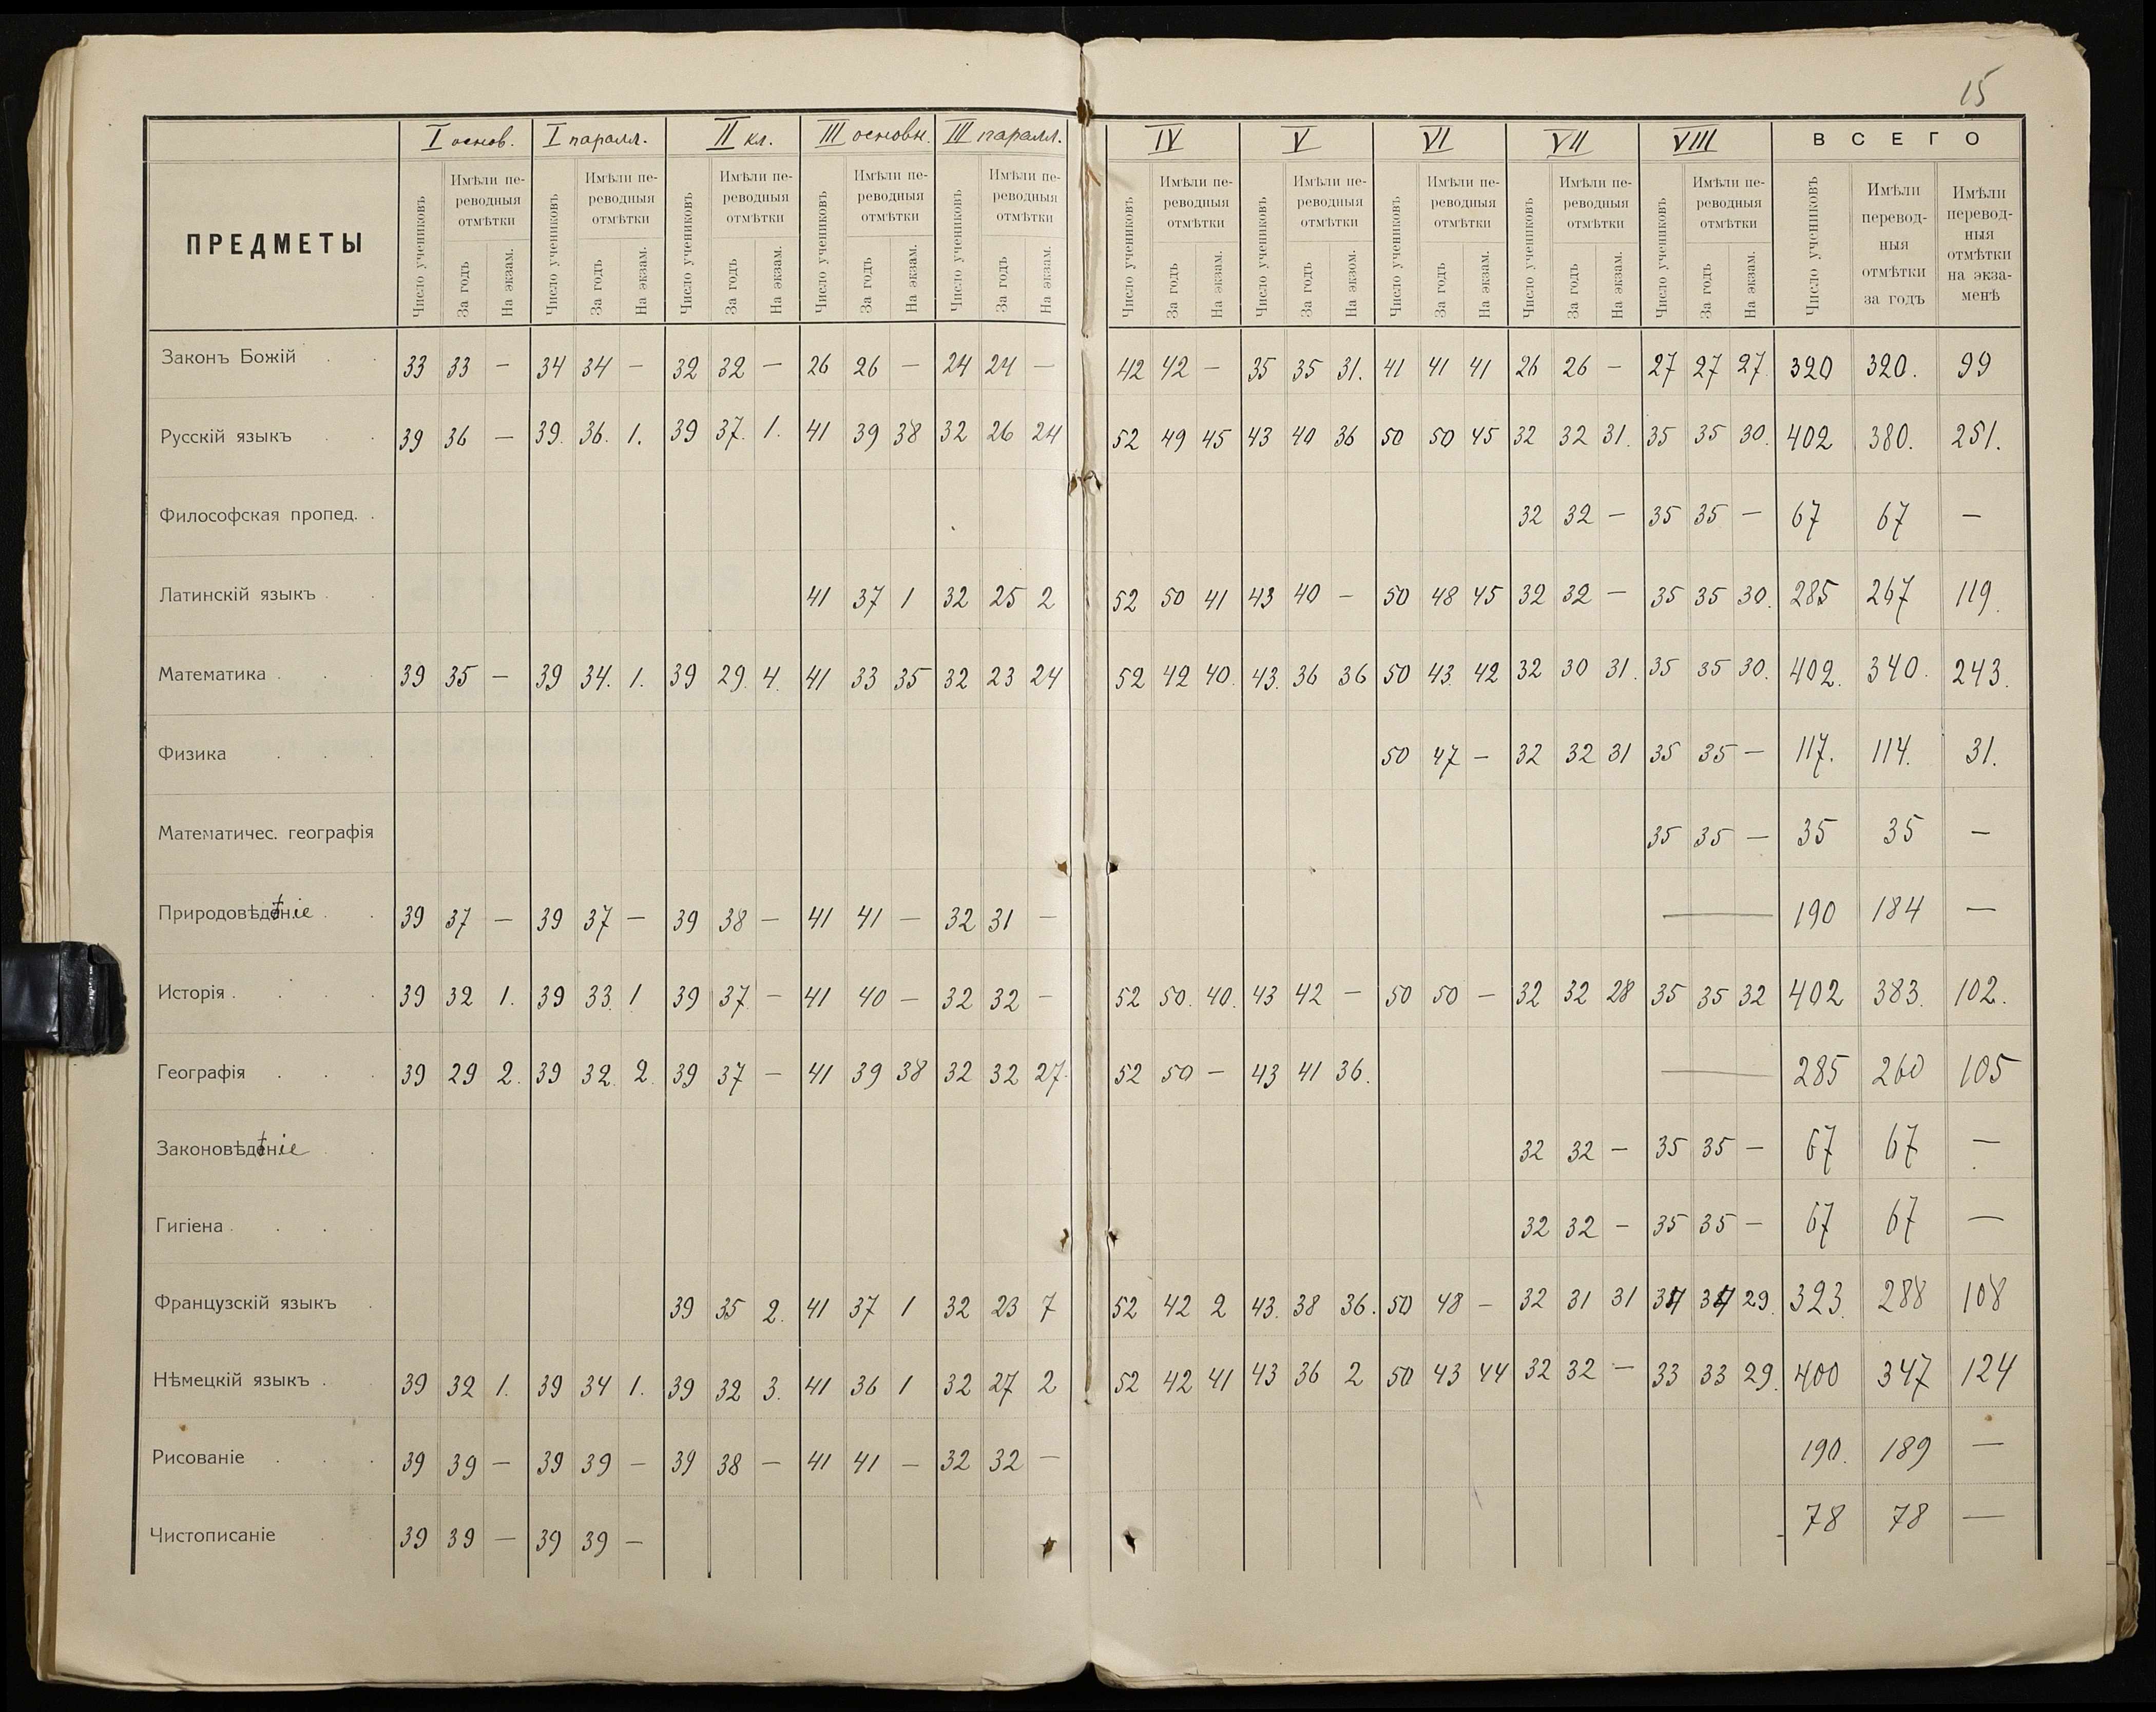 15
I основ. I паралл. II кл. III основн. III паралл. IV V VI VII VIII ВСЕГО
ПРЕДМЕТЫ
Число учениковъ Имѣли переводныя отмѣтки За годъ На экзам. Число учениковъ Имѣли переводныя отмѣтки За годъ На экзам. Число учениковъ Имѣли переводныя отмѣтки За годъ На экзам. Число учениковъ Имѣли переводныя отмѣтки За годъ На экзам. Число учениковъ Имѣли переводныя отмѣтки За годъ На экзам. Число учениковъ Имѣли переводныя отмѣтки За годъ На экзам. Число учениковъ Имѣли переводныя отмѣтки За годъ На экзом. Число учениковъ Имѣли переводныя отмѣтки За годъ На экзам. Число учениковъ Имѣли переводныя отмѣтки За годъ На экзам. Число учениковъ Имѣли переводныя отмѣтки За годъ На экзам. Число учениковъ Имѣли переводныя отмѣтки за годъ Имѣли переводныя отмѣтки на экзаменѣ
Законъ Божій 33 33 — 34 34 — 32 32 — 26 26 — 24 24 — 42 42 — 35 35 31. 41 41 41 26 26 — 27 27 27. 320 320. 99
Русскій языкъ 39 36 — 39. 36. 1. 39 37. 1. 41 39 38 32 26 24 52 49 45 43 40 36 50 50 45 32 32 31. 35 35 30. 402 380. 251.
Философская пропед. 32 32 — 35 35 — 67 67 —
Латинскій языкъ 41 37 1 32 25 2 52 50 41 43 40 — 50 48 45 32 32 — 35 35 30. 285 267 119.
Математика 39 35 — 39 34. 1. 39 29. 4. 41 33 35 32 23 24 52 42 40. 43. 36 36 50 43 42 32 30 31. 35 35 30. 402. 340. 243.
Физика 50 47 — 32 32 31 35 35 — 117. 114. 31.
Математичес. географія 35 35 — 35 35 —
Природовѣдѣніе 39 37 — 39 37 — 39 38 — 41 41 — 32 31 — — 190 184 —
Исторія 39 32 1. 39 33. 1 39 37 — 41 40 — 32 32 — 52 50. 40. 43 42 — 50 50 — 32 32 28 35 35 32 402 383. 102.
Географія 39 29 2. 39 32. 2. 39 37 — 41 39 38 32 32 27. 52 50 — 43 41 36. — 285 260 105
Законовѣдѣніе 32 32 — 35 35 — 67 67 —
Гигіена 32 32 — 35 35 — 67 67 —
Французскій языкъ 39 35 2. 41 37 1 32 23 7 52 42 2 43. 38 36. 50 48 — 32 31 31 34 34 29. 323. 288 108
Нѣмецкій языкъ 39 32 1. 39 34 1. 39 32 3. 41 36 1 32 27 2 52 42 41 43 36 2 50 43 44 32 32 — 33 33 29. 400 347 124
Рисованіе 39 39 — 39 39 — 39 38 — 41 41 — 32 32 — 190. 189 —
Чистописаніе 39 39 — 39 39 — 78 78 —